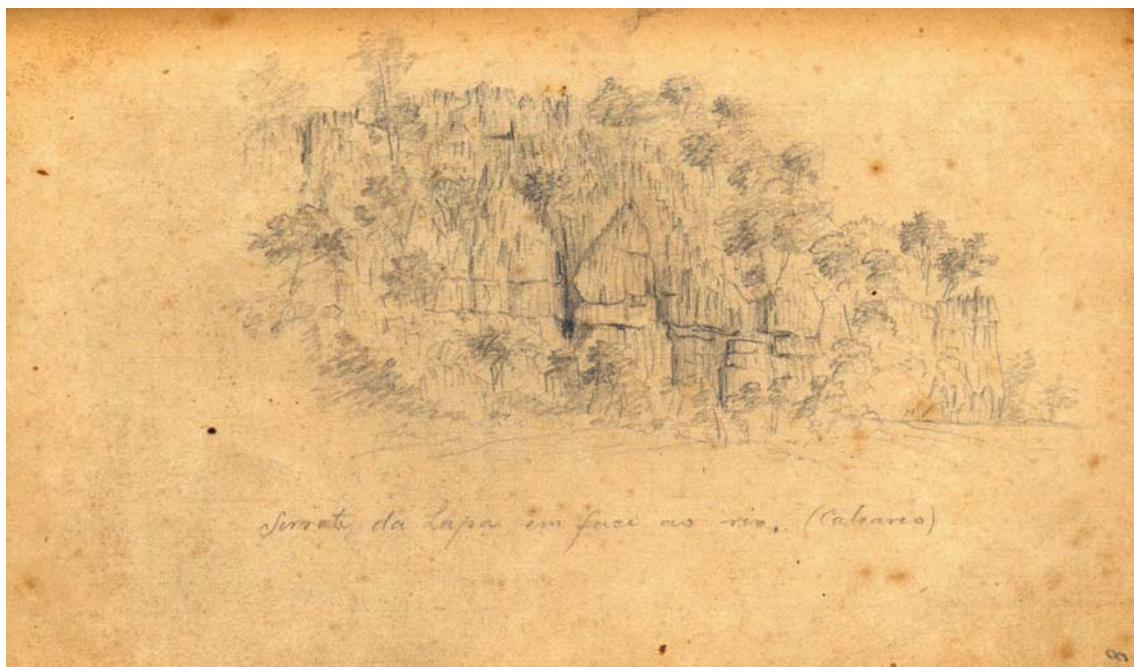 Serrote da Lapa em face ao rio. (Calcareo)
8